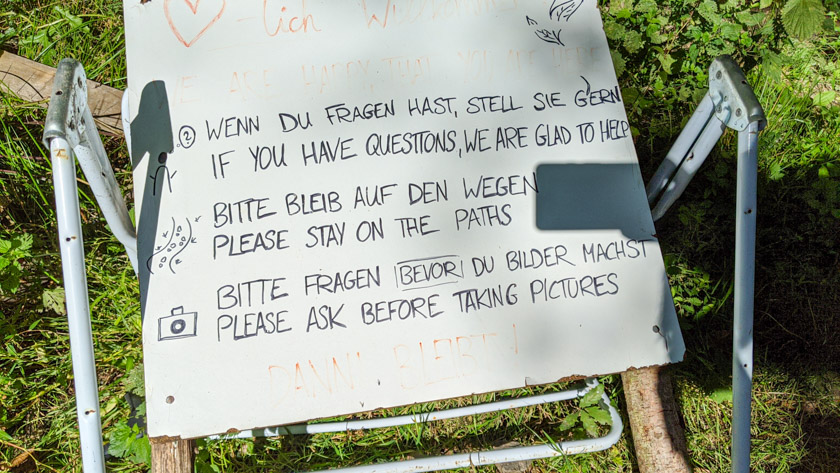 -lich Willkommen
WE ARE HAPPY THAT YOU ARE HERE
? WENN DU FRAGEN HAST, STELL SIE GERN
IF YOU HAVE QUESTIONS, WE ARE GLAD TO HELP
BITTE BLEIB AUF DEN WEGEN
PLEASE STAY ON THE PATHS
BITTE FRAGEN BEVOR DU BILDER MACHST
PLEASE ASK BEFORE TAKING PICTURES
DANNI BLEIBT!